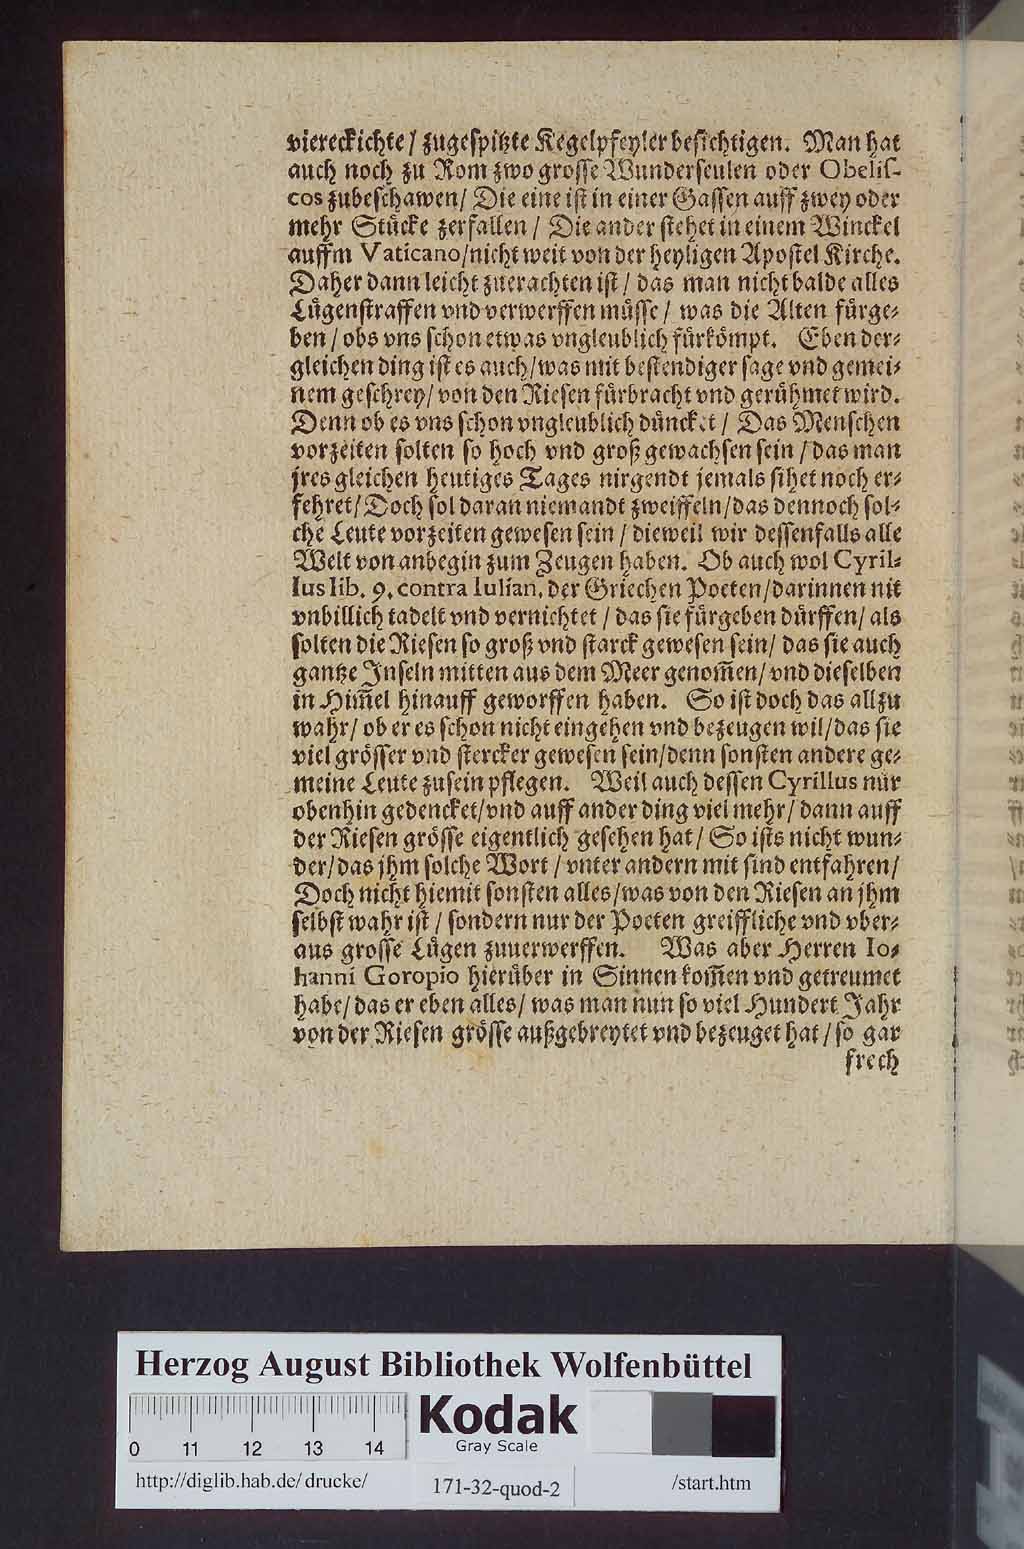 viereckichte / zugespitzte Kegelpfeyler besichtigen. Man hat
auch noch zu Rom zwo grosse Wunderseulen oder Obelis-
cos zubeschawen / Die eine ist in einer Gassen auff zwey oder
mehr Stücke zerfallen / Die ander stehet in einem Winckel
auffm Vaticano / nicht weit von der heyligen Apostel Kirche.
Daher dann leicht zuerachten ist / das man nicht balde alles
Lügenstraffen vnd verwerffen müsse / was die Alten fürge-
ben / obs vns schon etwas vngleublich fürkömpt. Eben der-
gleichen ding ist es auch / was mit bestendiger sage vnd gemei-
nem geschrey / von den Riesen fürbracht vnd gerühmet wird.
Denn ob es vns schon vngleublich düncket / Das Menschen
vorzeiten solten so hoch vnd groß gewachsen sein / das man
jres gleichen heutiges Tages nirgendt jemals sihet noch er-
fehret / Doch sol daran niemandt zweiffeln / das dennoch sol-
che Leute vorzeiten gewesen sein / dieweil wir dessenfalls alle
Welt von anbegin zum Zeugen haben. Ob auch wol Cyril-
lus lib. 9. contra Iulian. der Griechen Poeten / darinnen nit
vnbillich tadelt vnd vernichtet / das sie fürgeben dürffen / als
solten die Riesen so groß vnd starck gewesen sein / das sie auch
gantze Inseln mitten aus dem Meer genom̄en / vnd dieselben
in Him̄el hinauff geworffen haben. So ist doch das allzu
wahr / ob er es schon nicht eingehen vnd bezeugen wil / das sie
viel grösser vnd stercker gewesen sein / denn sonsten andere ge-
meine Leute zusein pflegen. Weil auch dessen Cyrillus nür
obenhin gedencket / vnd auff ander ding viel mehr / dann auff
der Riesen grösse eigentlich gesehen hat / So ists nicht wun-
der / das jhm solche Wort / vnter andern mit sind entfahren /
Doch nicht hiemit sonsten alles / was von den Riesen an jhm
selbst wahr ist / sondern nur der Poeten greiffliche vnd vber-
aus grosse Lügen zuuerwerffen. Was aber Herren Io-
hanni Goropio hierüber in Sinnen kom̄en vnd getreumet
habe / das er eben alles / was man nun so viel Hundert Jahr
von der Riesen grösse außgebreytet vnd bezeuget hat / so gar
frech
Herzog August Bibliothek Wolfenbüttel
0 11 12 13 14
Kodak
Gray Scale
http://diglib.hab.de/drucke/
171-32-quod-2
/start.htm